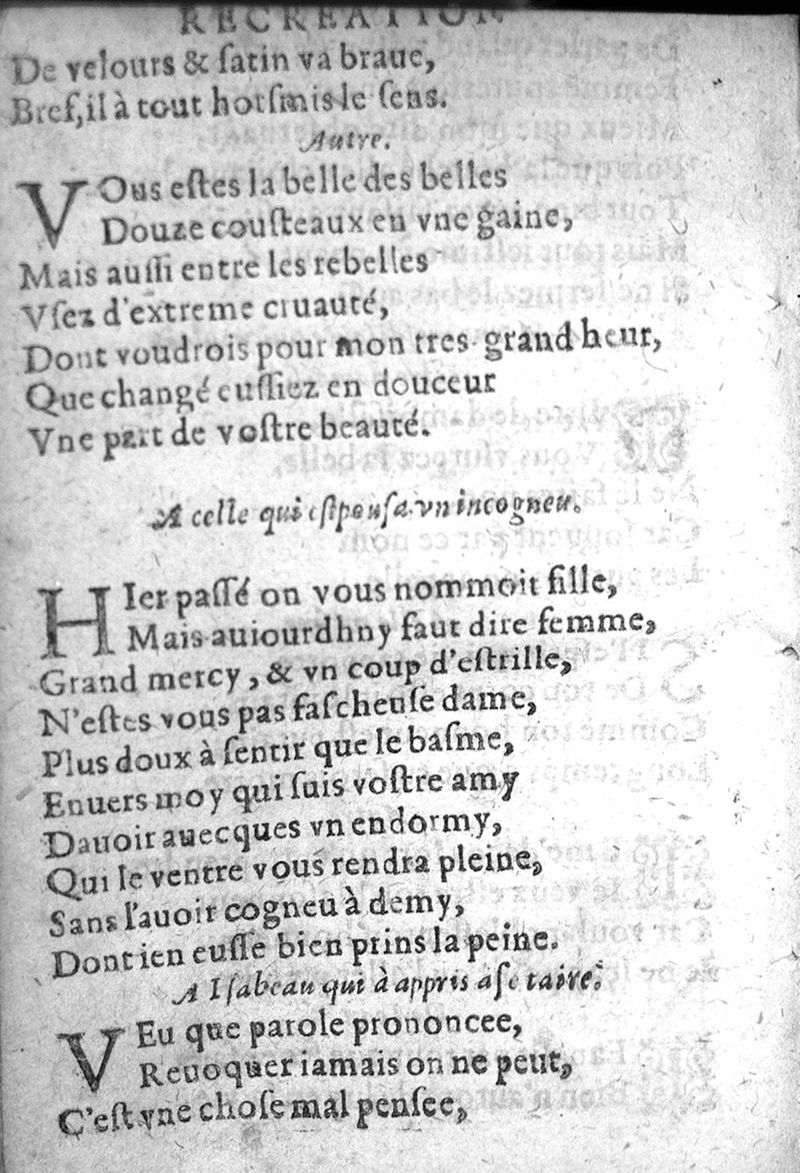 RECREATION
De velours & ſatin va braue,
Bref, il à tout horſmis le ſens.
Autre.
VOus eſtes la belle des belles
Douze couſteaux en vne gaine,
Mais auſſi entre les rebelles
Vſez d'extreme cruauté,
Dont voudrois pour mon tres-grand heur,
Que changé euſſiez en douceur
Vne part de voſtre beauté.
A celle qui eſpouſa vn incogneu.
HIer paſſé on vous nommoit fille,
Mais auiourdhny faut dire femme,
Grand mercy, & vn coup d'eſtrille,
N'eſtes vous pas faſcheuſe dame,
Plus doux à ſentir que le baſme,
Enuers moy qui ſuis voſtre amy
Dauoir auecques vn endormy,
Qui le ventre vous rendra pleine,
Sans l'auoir cogneu à demy,
Dont ien euſſe bien prins la peine.
A Iſabeau qui à appris a ſe taire.
VEu que parole prononcee,
Reuoquer iamais on ne peut,
C'eſt vne choſe mal penſee,